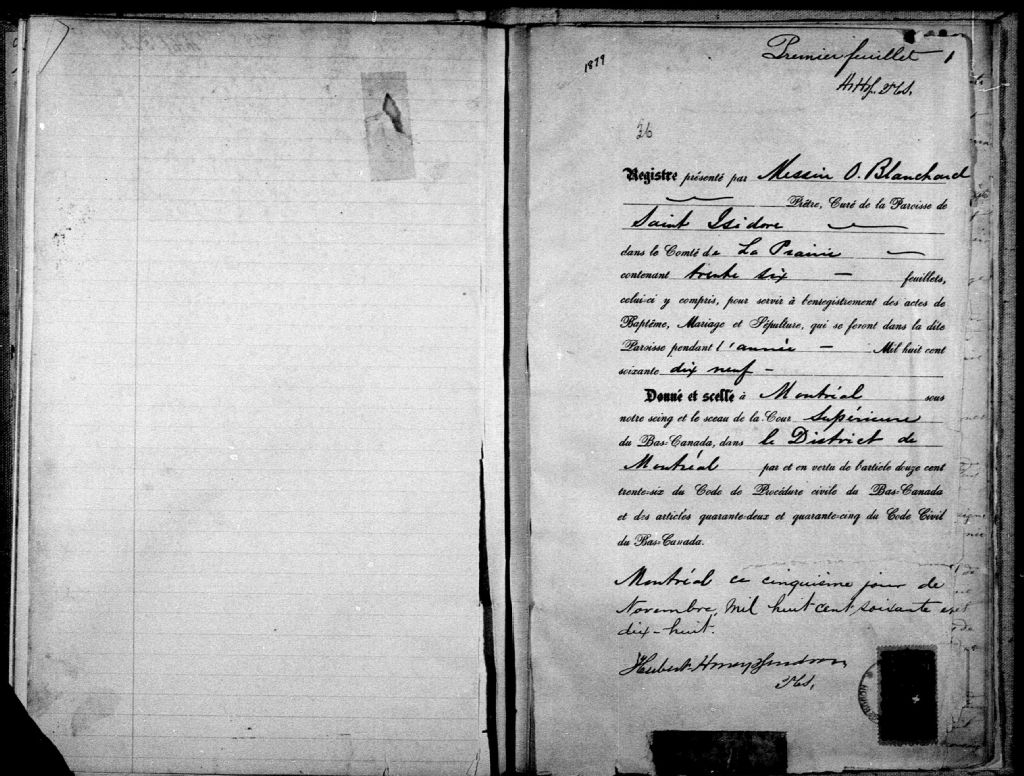 1879
Premier feuillet 1
36
Registre présenté par Messire O. Blanchard
Prêtre, Curé de la Paroisse de
Saint Isidore
dans le Comté de La Prairie
contenant trente six feuillets,
celui-ci y compris, pour servir à l'enregistrement des actes de
Baptême, Mariage et Sépulture, qui se feront dans la dite
Paroisse pendant l'année Mil huit cent
soixante dix neuf
Donné et scellé à Montréal sous
notre seing et le sceau de la Cour Supérieure
du Bas-Canada, dans le District de
Montréal par et en vertu de l'article douze cent
trente-six du Code de Procédure civile du Bas-Canada
et des articles quarante-deux et quarante-cinq du Code Civil
du Bas-Canada.
Montréal ce cinquième jour de
Novembre, Mil huit cent soixante et
dix-huit.